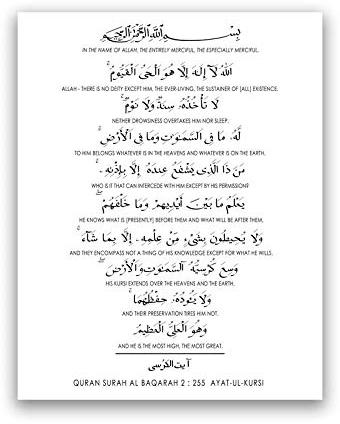 بِسْمِ ٱللَّهِ ٱلرَّحْمَٰنِ ٱلرَّحِيمِ
IN THE NAME OF ALLAH, THE ENTIRELY MERCIFUL, THE ESPECIALLY MERCIFUL.
ٱللَّهُ لَآ إِلَٰهَ إِلَّا هُوَ ٱلْحَىُّ ٱلْقَيُّومُ ۚ
ALLAH - THERE IS NO DEITY EXCEPT HIM, THE EVER-LIVING, THE SUSTAINER OF [ALL] EXISTENCE.
لَا تَأْخُذُهُۥ سِنَةٌ وَلَا نَوْمٌ ۚ
NEITHER DROWSINESS OVERTAKES HIM NOR SLEEP.
لَّهُۥ مَا فِى ٱلسَّمَٰوَٰتِ وَمَا فِى ٱلْأَرْضِ ۗ
TO HIM BELONGS WHATEVER IS IN THE HEAVENS AND WHATEVER IS ON THE EARTH.
مَن ذَا ٱلَّذِى يَشْفَعُ عِندَهُۥٓ إِلَّا بِإِذْنِهِۦ ۚ
WHO IS IT THAT CAN INTERCEDE WITH HIM EXCEPT BY HIS PERMISSION?
يَعْلَمُ مَا بَيْنَ أَيْدِيهِمْ وَمَا خَلْفَهُمْ ۖ
HE KNOWS WHAT IS [PRESENTLY] BEFORE THEM AND WHAT WILL BE AFTER THEM,
وَلَا يُحِيطُونَ بِشَىْءٍ مِّنْ عِلْمِهِۦٓ إِلَّا بِمَا شَآءَ ۚ
AND THEY ENCOMPASS NOT A THING OF HIS KNOWLEDGE EXCEPT FOR WHAT HE WILLS.
وَسِعَ كُرْسِيُّهُ ٱلسَّمَٰوَٰتِ وَٱلْأَرْضَ ۖ
HIS KURSI EXTENDS OVER THE HEAVENS AND THE EARTH,
وَلَا يَـُٔودُهُۥ حِفْظُهُمَا ۚ
AND THEIR PRESERVATION TIRES HIM NOT.
وَهُوَ ٱلْعَلِىُّ ٱلْعَظِيمُ
AND HE IS THE MOST HIGH, THE MOST GREAT.
آيت الكرسي
QURAN SURAH AL BAQARAH 2 : 255 AYAT-UL-KURSI